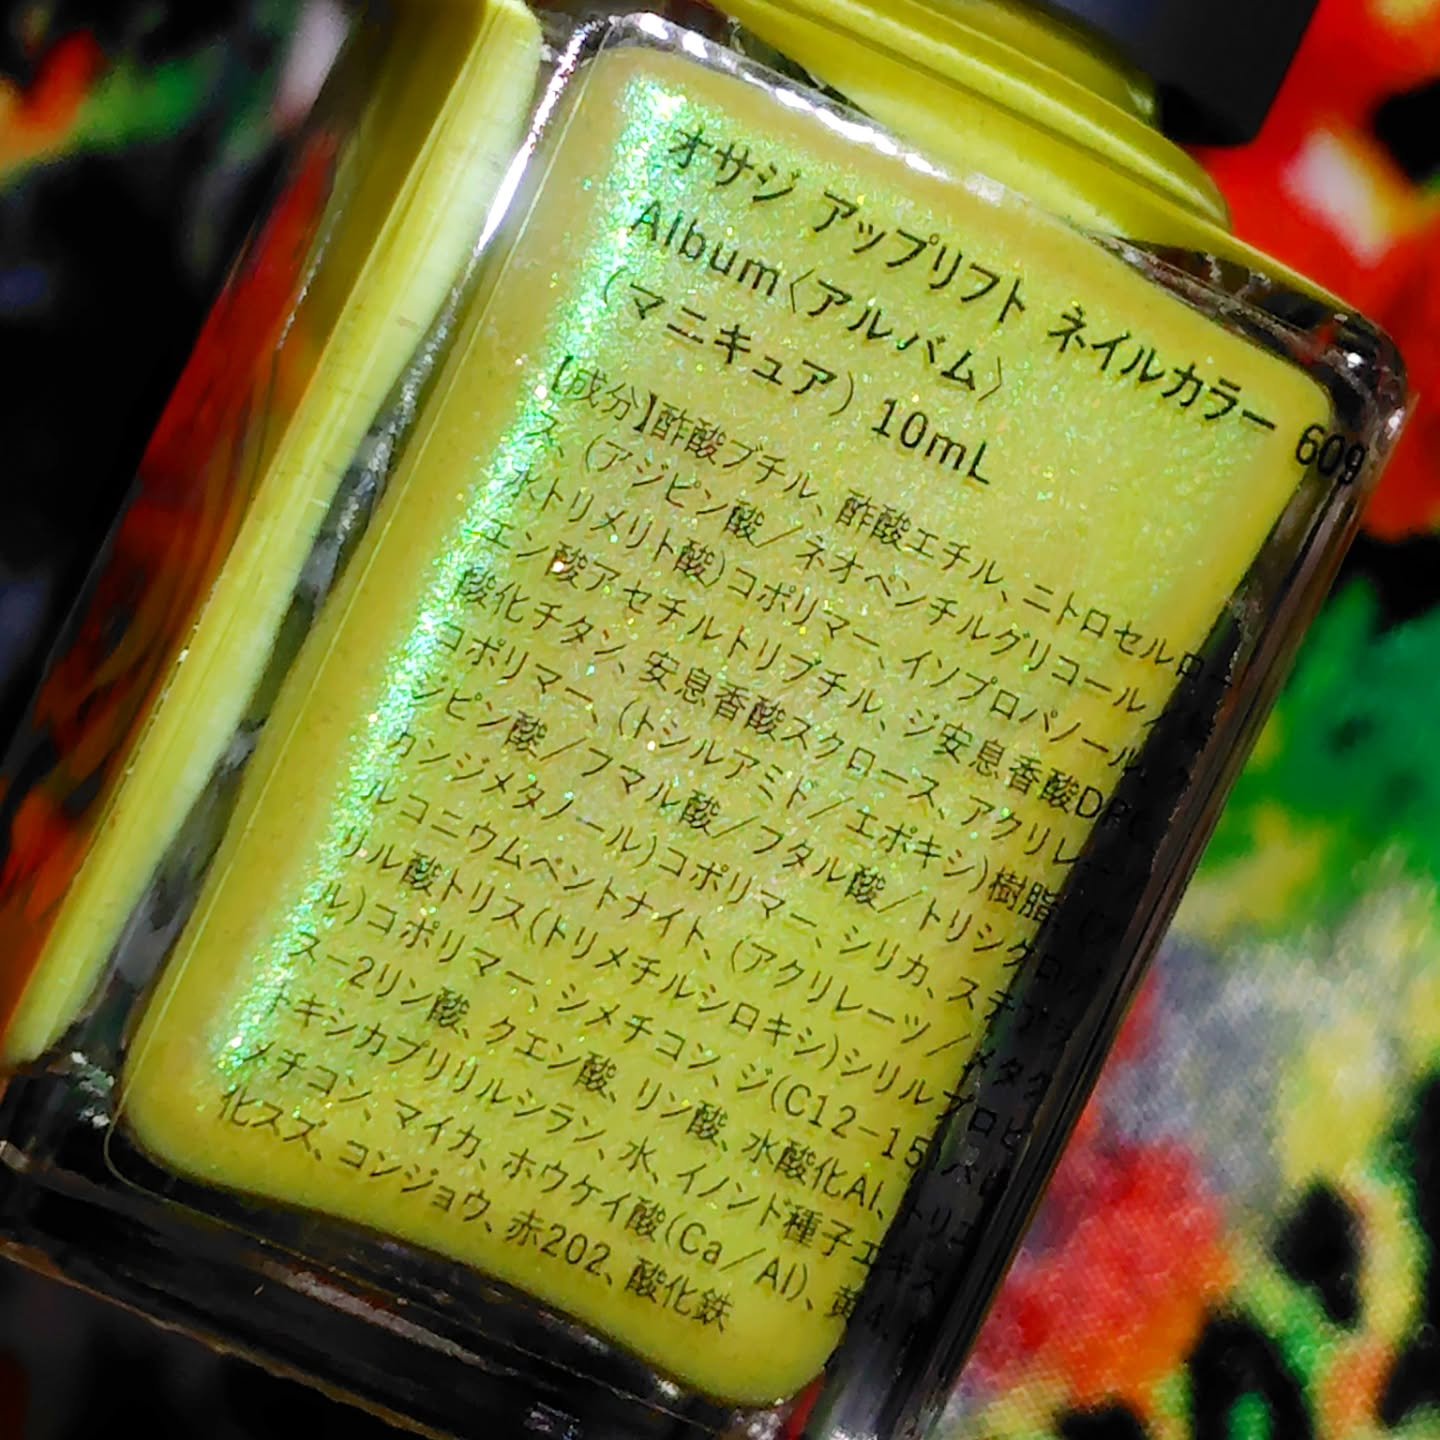 オサジ アップリフト ネイルカラー 609
Album〈アルバム〉
（マニキュア）10mL
【成分】酢酸ブチル、酢酸エチル、ニトロセルロー
ス、(アジピン酸／ネオペンチルグリコール／無
水トリメリト酸)コポリマー、イソプロパノール、ク
エン酸アセチルトリブチル、ジ安息香酸DPG、
酸化チタン、安息香酸スクロース、アクリレーツ
コポリマー、(トシルアミド／エポキシ)樹脂、(ア
ジピン酸／フマル酸／フタル酸／トリシクロデ
カンジメタノール)コポリマー、シリカ、ステアラ
ルコニウムベントナイト、(アクリレーツ／メタク
リル酸トリス(トリメチルシロキシ)シリルプロピ
ル)コポリマー、シメチコン、ジ(C12-15)パレ
ス-2リン酸、クエン酸、リン酸、水酸化Al、トリエ
トキシカプリリルシラン、水、イノンド種子エキス
メチコン、マイカ、ホウケイ酸(Ca／Al)、黄4
化スズ、コンジョウ、赤202、酸化鉄